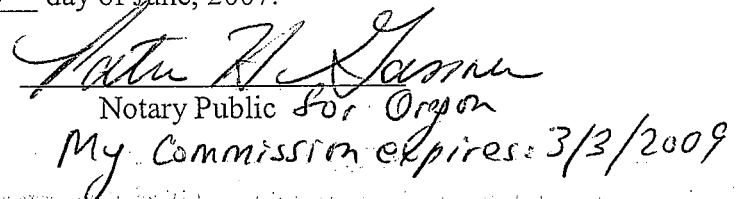 day of June, 2007.
Notary Public for Oregon
My Commission expires: 3/3/2009